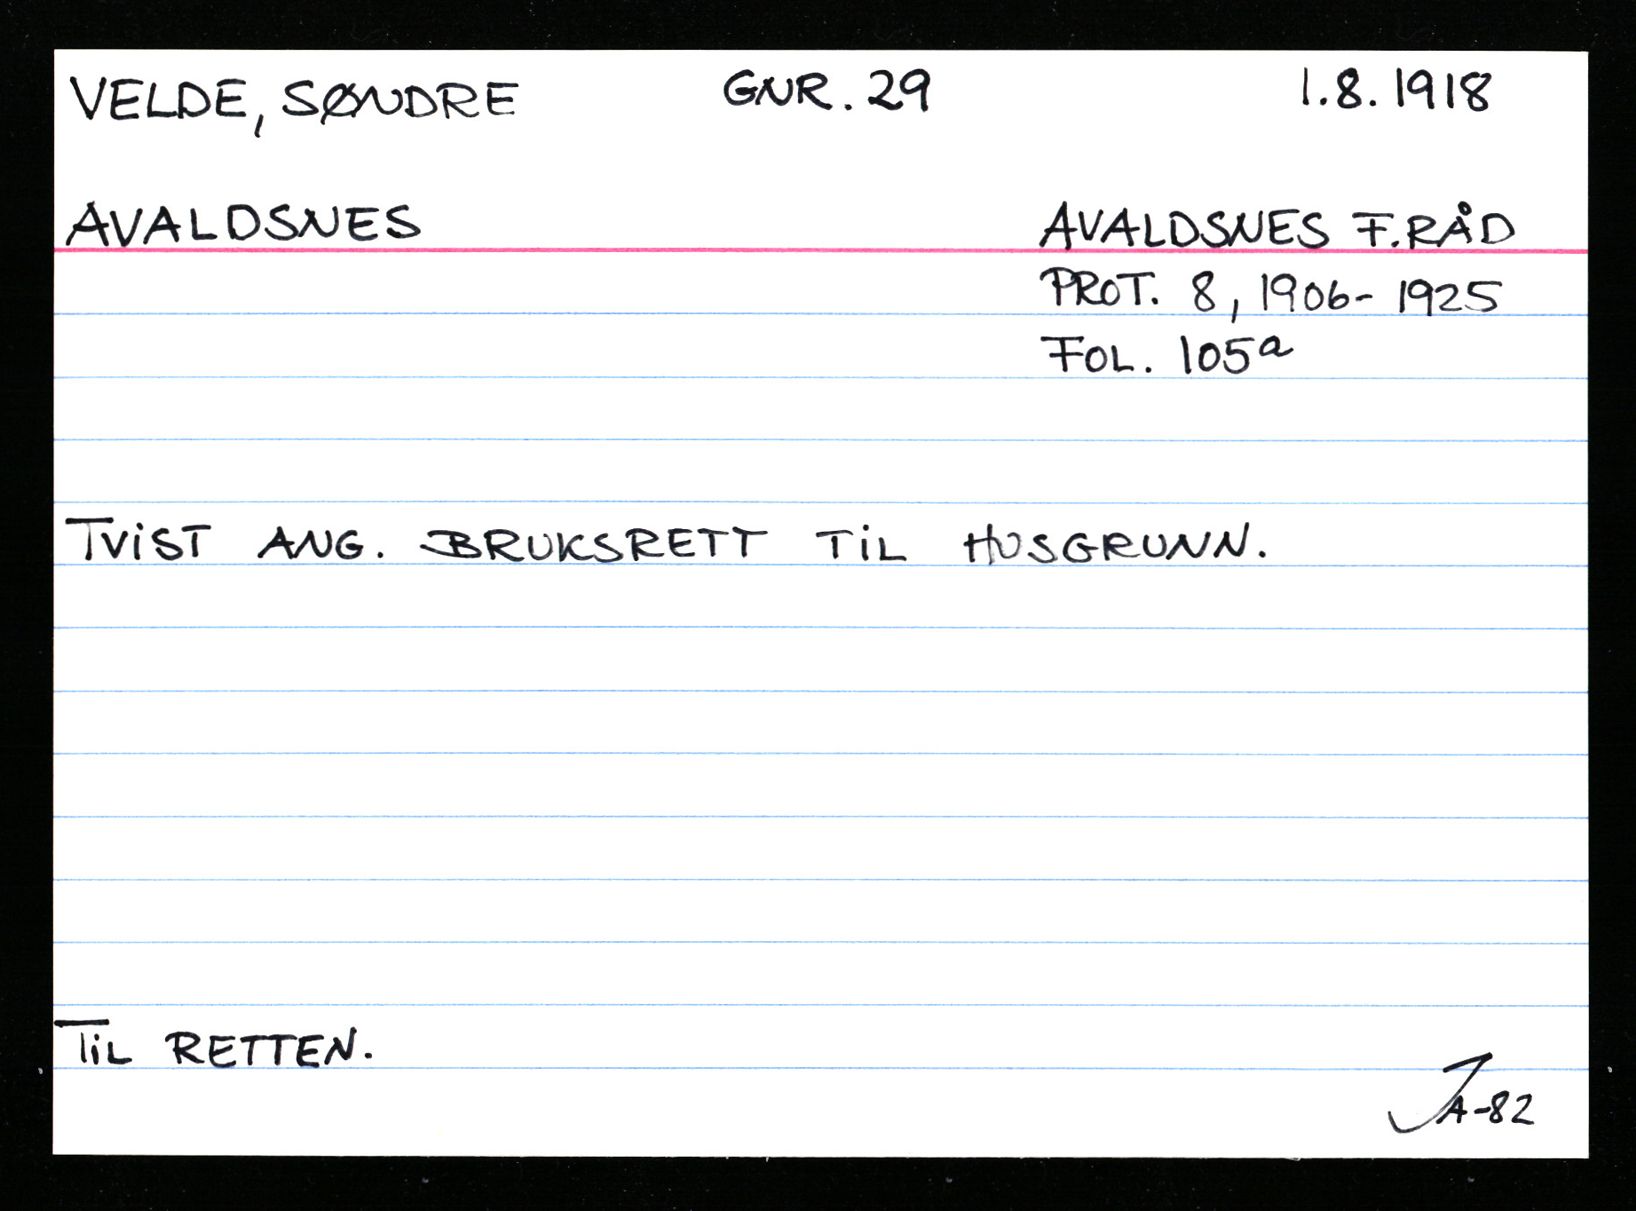 VELDE, SØNDRE GNR. 29 1.8.1918
AVALDSNES AVALDSNES F.RÅD
PROT. 8, 1906-1925
FOL. 105a
TViST ANG. BRUKSRETT TiL HUSGRUNN.
TiL RETTEN.
JA-82